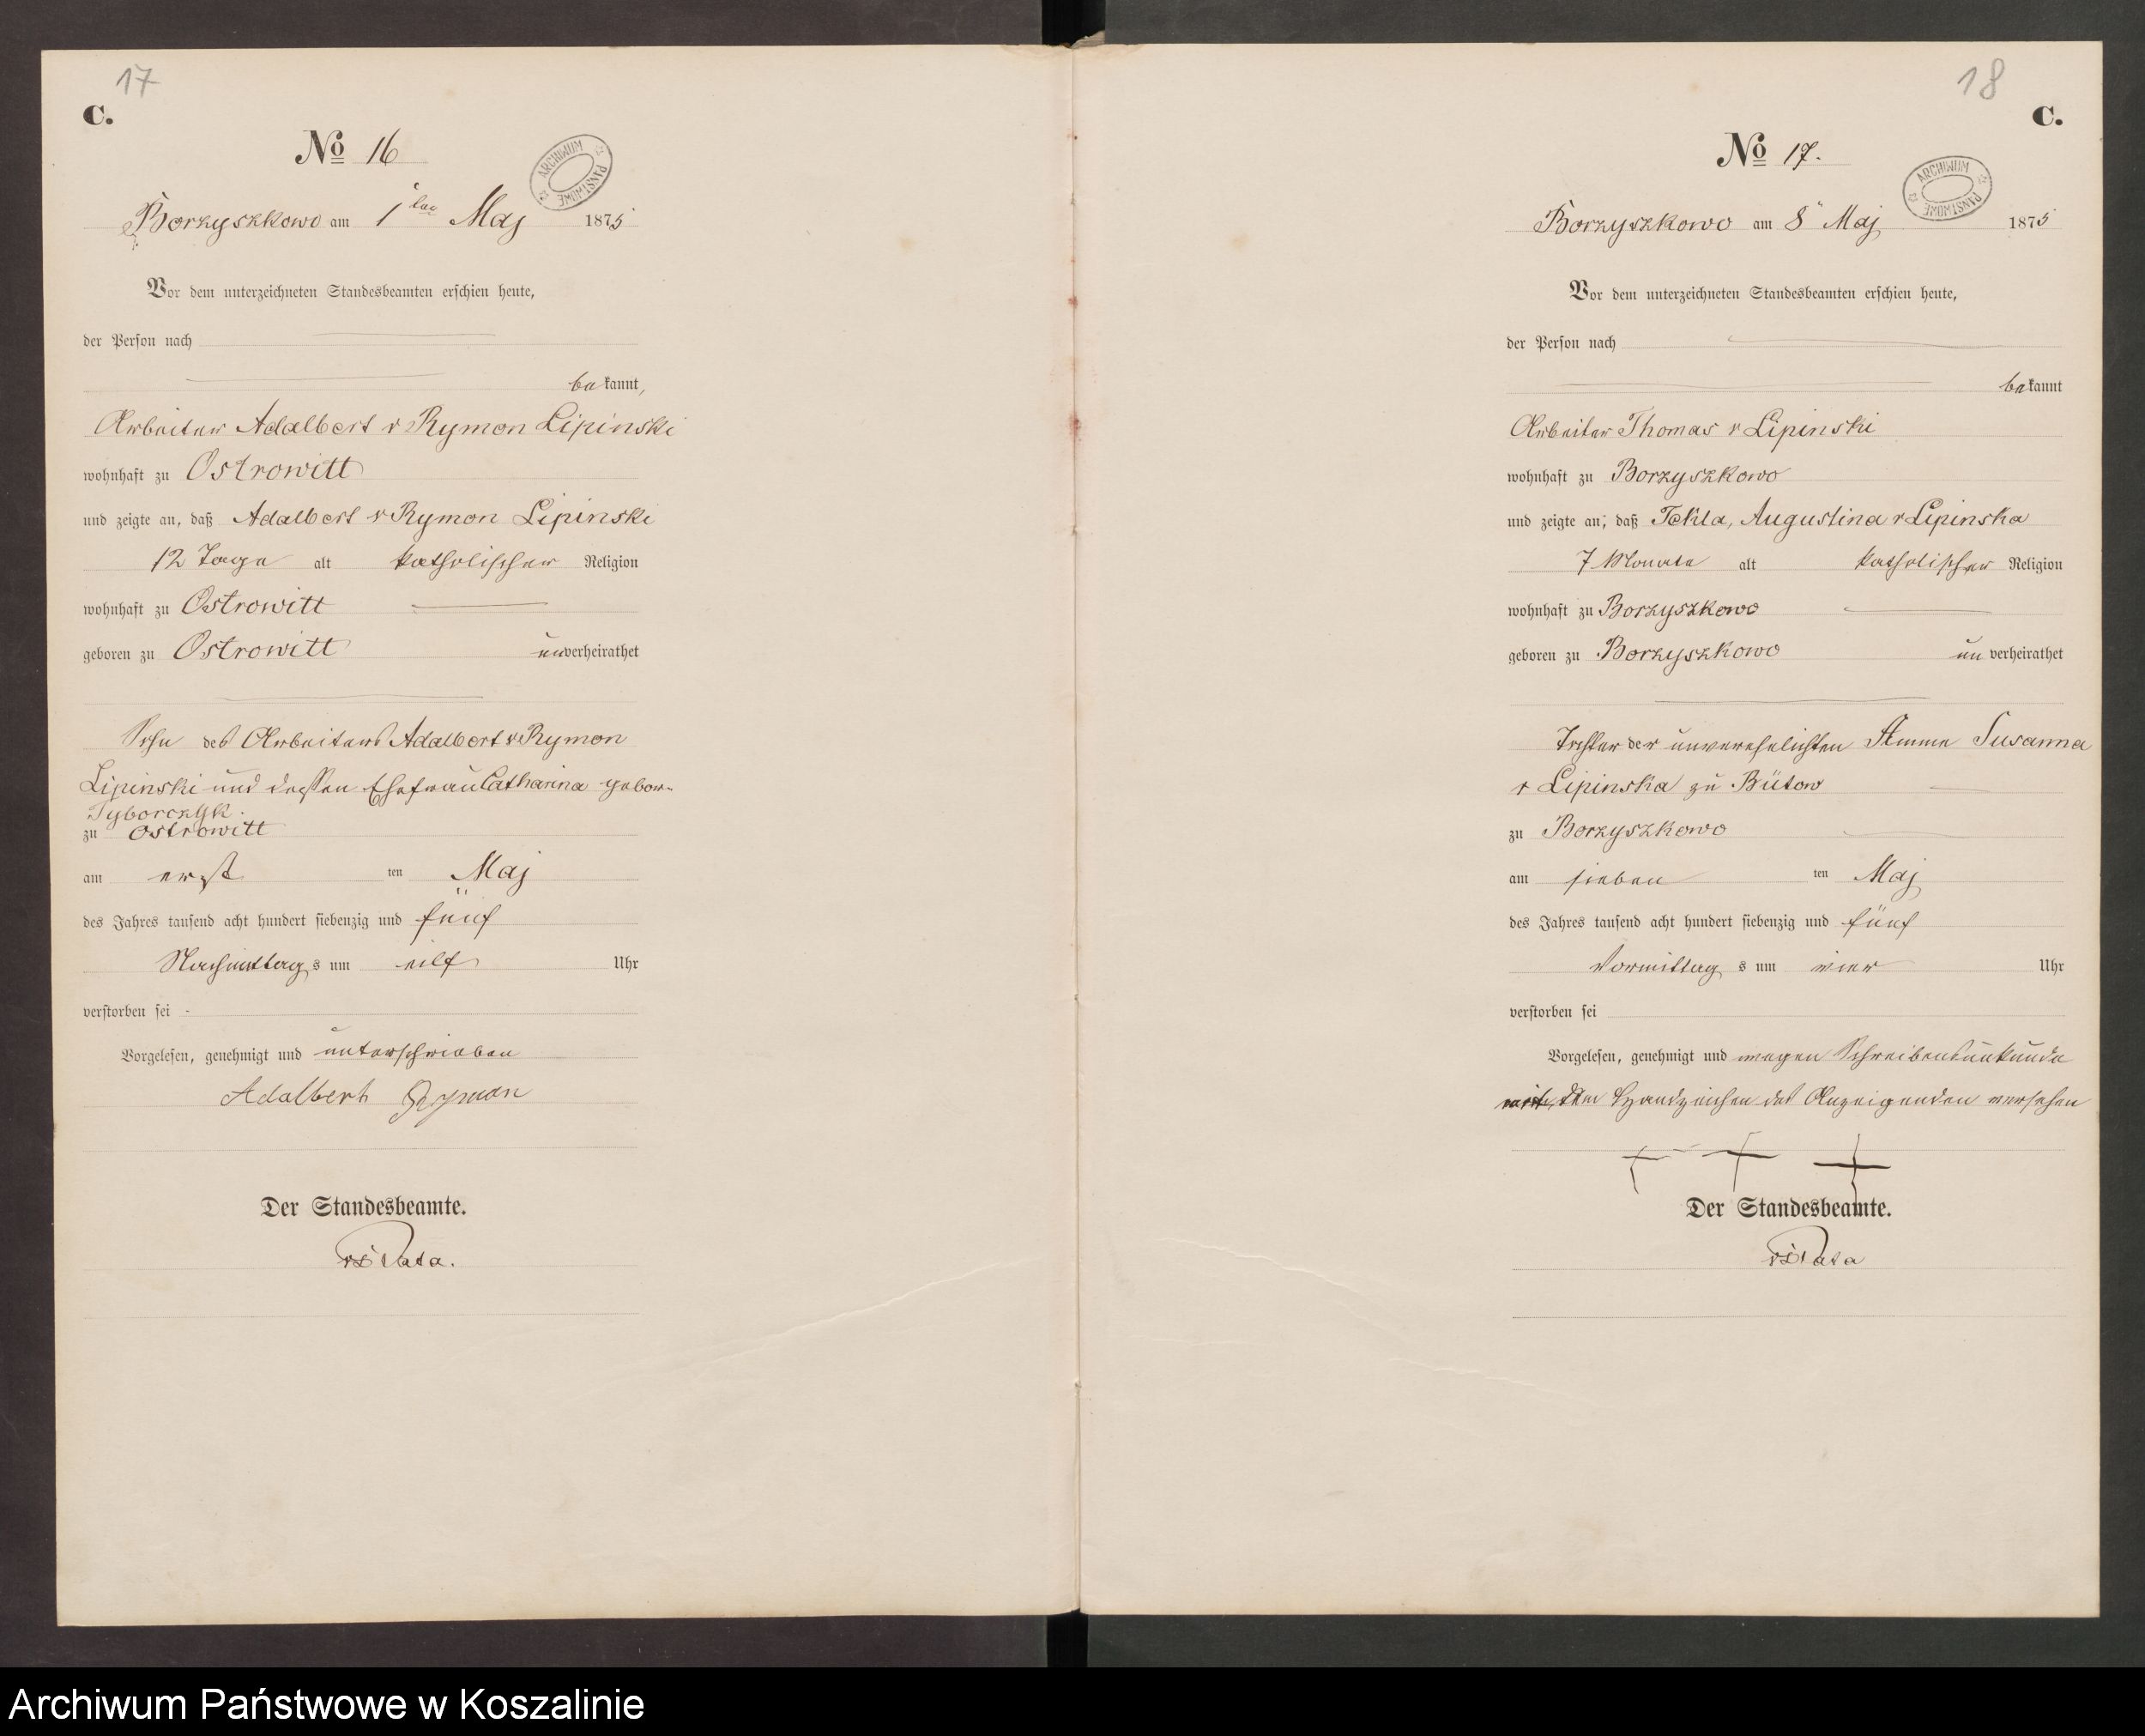 17
C.
No 16
ARCHIWUM PAŃSTWOWE
Borzyszkowo am 1ten Maj 1875
Vor dem unterzeichneten Standesbeamten erschien heute,
der Person nach
bekannt,
Arbeiter Adalbert v Rymon Lipinski
wohnhaft zu Ostrowitt
und zeigte an, daß Adalbert v Rymon Lipinski
12 Tage alt katholischer Religion
wohnhaft zu Ostrowitt
geboren zu Ostrowitt unverheirathet
Sohn des Arbeiters Adalbert v Rymon
Lipinski und dessen Ehefrau Catharina gebor.
Tyborczyk.
zu Ostrowitt
am erst ten Maj
des Jahres tausend acht hundert siebenzig und fünf
Nachmittag s um eilf Uhr
verstorben sei -
Vorgelesen, genehmigt und unterschrieben
Adalbert Rymon
Der Standesbeamte.
18
C.
No 17.
ARCHIWUM PAŃSTWOWE
Borzyszkowo am 8 Maj 1875
Vor dem unterzeichneten Standesbeamten erschien heute,
der Person nach
bekannt
Arbeiter Thomas v Lipinski
wohnhaft zu Borzyszkowo
und zeigte an, daß Tekla, Augustina v Lipinska
7 Monate alt katholischer Religion
wohnhaft zu Borzyszkowo
geboren zu Borzyszkowo un verheirathet
Tochter der unverehelichten Amme Susanna
v Lipinska zu Bütow
zu Borzyszkowo
am sieben ten Maj
des Jahres tausend acht hundert siebenzig und fünf
Vormittag s um vier Uhr
verstorben sei
Vorgelesen, genehmigt und wegen Schreibensunkunde
mit dem Handzeichen des Anzeigenden versehen
+ + +
Der Standesbeamte.
Archiwum Państwowe w Koszalinie